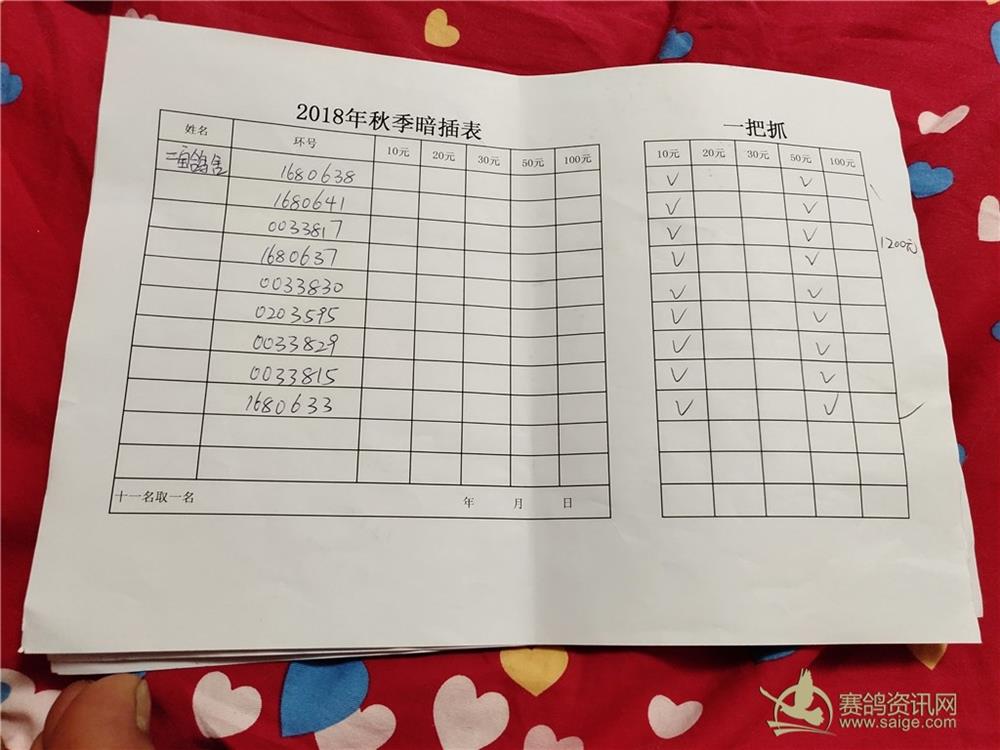 2018年秋季暗插表
一把抓
姓名 环号 10元 20元 30元 50元 100元
10元 20元 30元 50元 100元
鸽舍 1680638 ✓ ✓
1680641 ✓ ✓
0033817 ✓ ✓
1680637 ✓ ✓
1200元
0033830 ✓ ✓
0203595 ✓ ✓
0033829 ✓ ✓
0033815 ✓ ✓
1680633 ✓ ✓
十一名取一名 年 月 日
赛鸽资讯网
www.saige.com